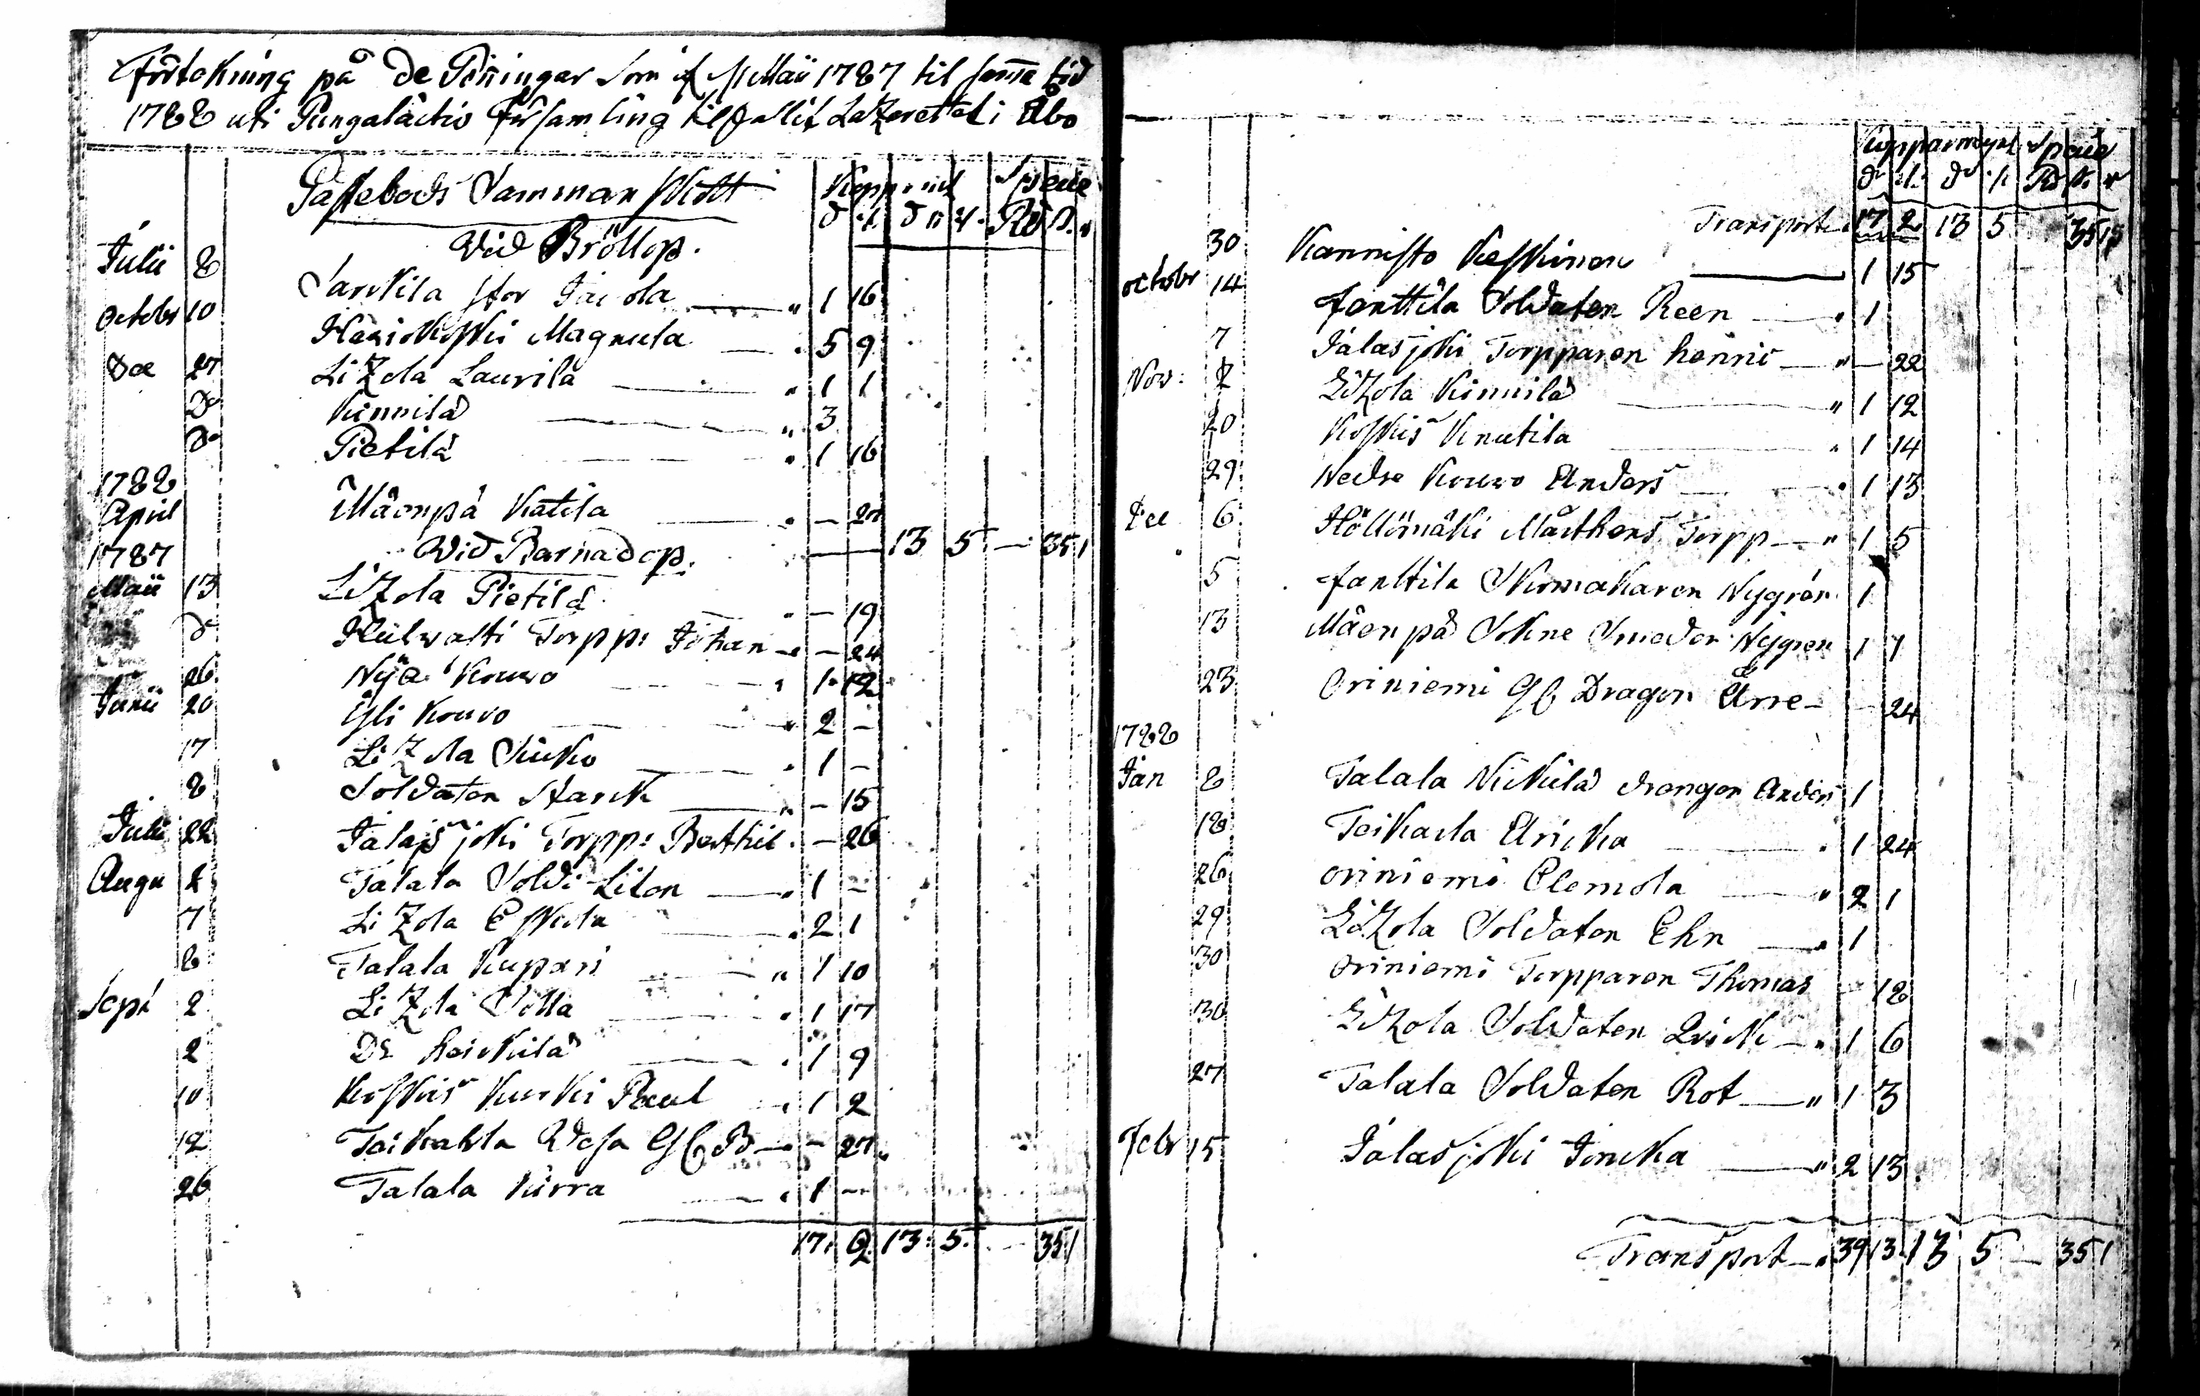 Förtekning på de Peñingar som if 1 Maii 1787 til samma tid
1788 uti Pungalaitio Församling til fallit Lazarettet i Åbo
Gästebods Sammanskott Kopp: mt Specie
Vid Bröllop. d. d Rd
Julii 8 Sarkila 1 16
Octobr 10 Magnula 5 9
Dec 27 LiZola Laurila 1 1
Do Kinnilä 3
Do Pietilä 1 16
1788
April Måenpä Katila - 27
1787 Vid Barnadop. 13 5 - 35 1
Maii 13 LiZola Pietilä - 19
d Hulwalti Torpp: Johan - 24
26 Nya Kouvo 1 12
Junii 20 Yli Kouvo 2 -
17 LiZola 1 -
8 Soldaten Starck - 15
Julii 22 Jalasjoki Torpp: Berthil - 26
Augu 2 Talala Sold: Liton 1 -
7 LiZola Eskola 2 1
8 Talala Kupari 1 10
Sept 2 LiZola 1 17
2 Do Heickilä 1 9
10 Koskis Kurki Paul 1 2
12 Wesa G B - 27
26 Talala Kirra 1 -
17 2 13 5 - 35 1
Kopparmynt Specie
Transport 17 2 13 5 35 1
30 Kannisto Keskinen 1 15
octobr 14 Janttila Soldaten Reen 1
7 Jalasjoki Torpparen henric - 22
Nov: 2 LiZola Kinnilä 1 12
20 Koskis Knutila 1 14
29 Nedre Kouvo Anders 1 13
Dec 6 Höllömäki Mårthens Torpp 1 5
5 Janttila Skomakaren Nygrén 1
13 Måenpä Sokne Smeden Nygren 1 7
23 Oriniemi G Dragon Arre - 24
1788
Jan 8 Talala Kickila drengen Anders 1
18 Ericka 1 24
26 oriniemi Clemola 2 1
29 LiZola Soldaten Ehn 1
30 oriniemi Torpparen Thomas - 18
30 LiZola Soldaten Qvick 1 6
27 Talala Soldaten Rot 1 3
Febr 15 Jalasjoki 2 13
Transport 39 13 13 5 - 35 1